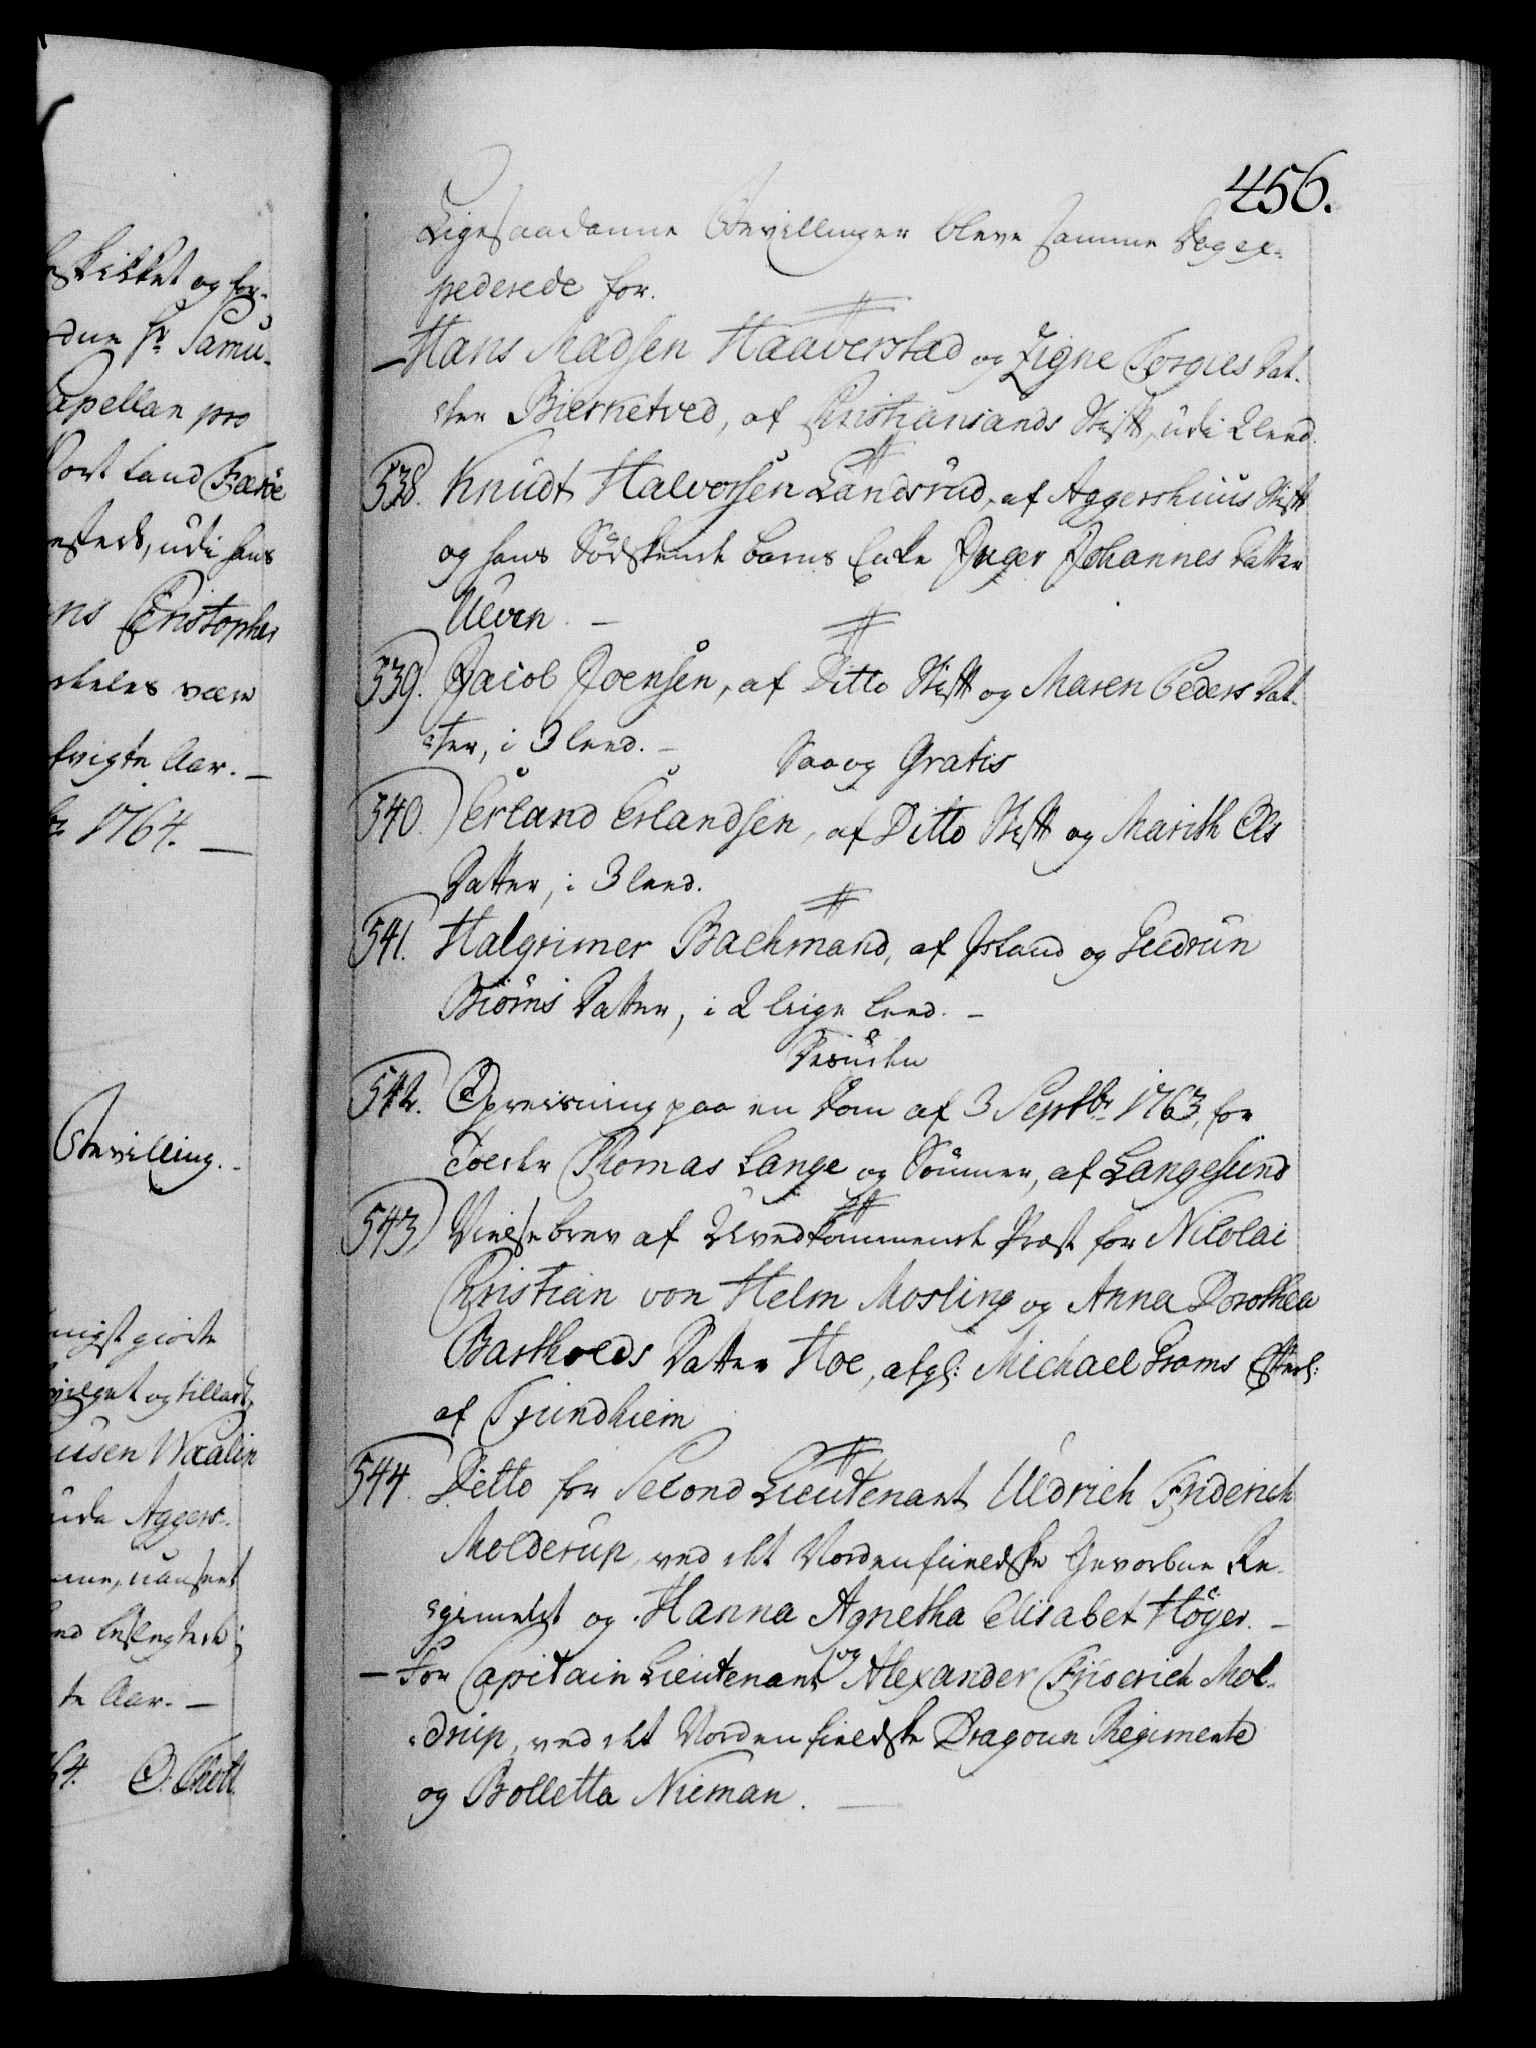 456.
Ligesaadanne Bevillinger bleve samme Dag ex-
pederede for.
Hans Madsen Haaverstad og Zigne Torgies Dat-
ter Bierketved, af Christiansands Stift, udi 2 leed.
538. Knudt Halvorsen Landsrud, af Aggershuus Stift
og hans Södskende barns Enke Inger Johannes Datter
Ulven. —
539. Jacob Joensen, af Ditto Stift og Maren Peders Dat-
ter, i 3 leed. —
Saa og Gratis
540. Erland Erlandsen, af Ditto Stift og Marith Ols
Datter, i 3 leed.
541. Halgrimer Bachmand, af Island og Gudrun
Biörns Datter, i 2 lige leed. —
Desuden
542. Opreisning paa en Dom af 3 Septbr 1763, for
Tolder Thomas Lange og Sönner, af Langesund
543. Vielsebrev af Uvedkommende Præst for Nicolai
Christian von Helm Mosling og Anna Dorothea
Bartholds Datter Hoe, afgl: Michael Groms Efterl:
af Trundhiem
544. Ditto for Second Lieutenant Uldrich Friderich
Molderup, ved det Nordenfieldske Gevorbne Re-
gimendt og Hanna Agnetha Elisabet Höyer. —
— For Capitain Lieutenant og Alexander Friderich Mol-
drup, ved det Nordenfieldske Dragoun Regimente
og Bolletta Nieman. —
skikket og for-
Hr. Samu-
Capellan pro
Vort Land Færöe
udi hans
Christopher
være
Aar. —
1764. —
Bevilling. —
giorde
og tillade,
Aggers-
te Aar. —
64. O. Thott.